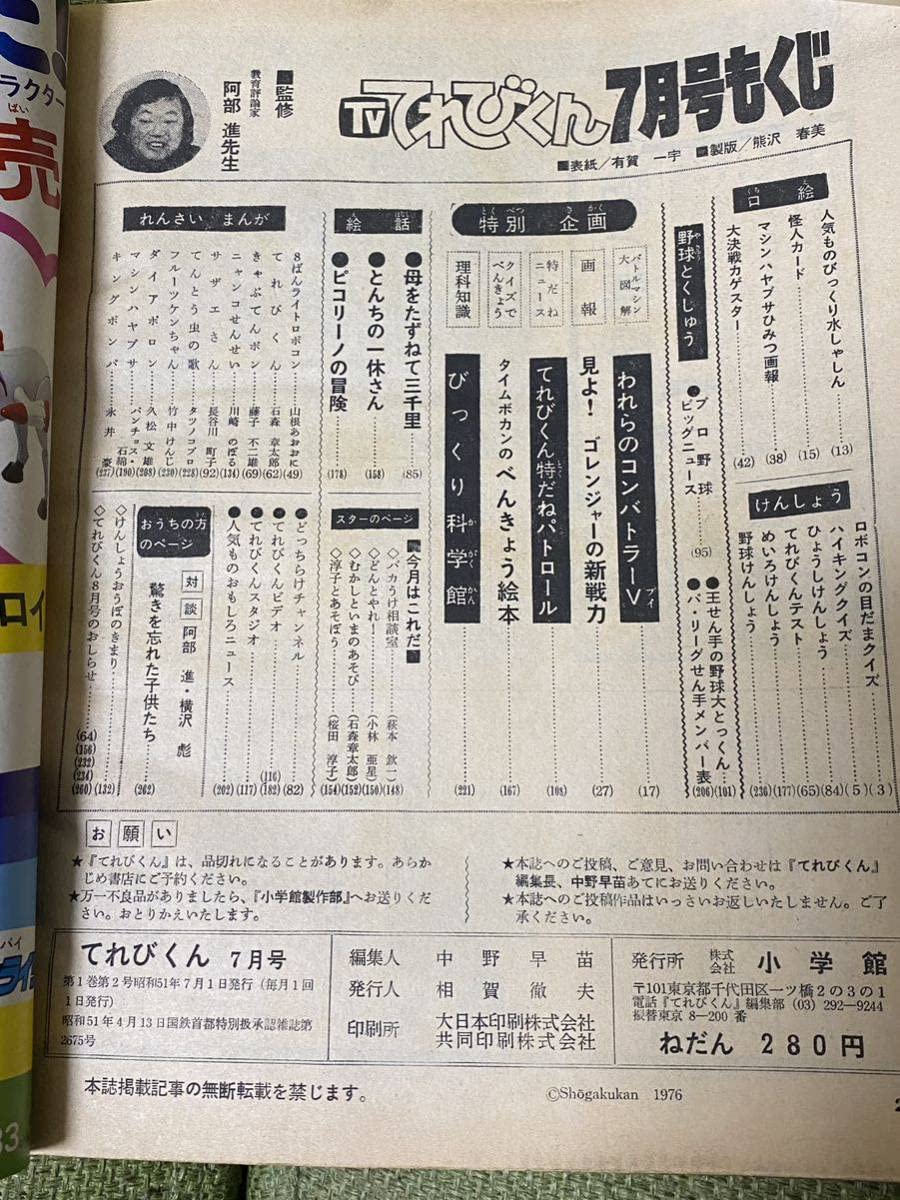 TVてれびくん7月号もくじ
■表紙/有賀 一宇 ■製版/熊沢 春美
■監修
教育評論家
阿部 進先生
口絵
人気ものびっくり水しゃしん (13)
怪人カード (15)
マシンハヤブサひみつ画報 (38)
大決戦カゲスター (42)
けんしょう
ロボコンの目だまクイズ (3)
ハイキングクイズ (5)
ひょうしけんしょう (84)
てれびくんテスト (65)
めいろけんしょう (177)
野球けんしょう (236)
野球とくしゅう
●プロ野球ビッグニュース (95)
●王せん手の野球大とっくん (101)
●パ・リーグせん手メンバー表 (206)
特別企画
バトルマシン大図解
われらのコンバトラーV (17)
画報
見よ! ゴレンジャーの新戦力 (27)
特だねニュース
てれびくん特だねパトロール (108)
クイズでべんきょう
タイムボカンのべんきょう絵本 (167)
理科知識
びっくり科学館 (221)
絵話
●母をたずねて三千里 (85)
●とんちの一休さん (158)
●ピコリーノの冒険 (178)
スターのページ
■今月はこれだ■
◇バカうけ相談室 (萩本 欽一) (148)
◇どんとやれ! (小林 亜星) (150)
◇むかしといまのあそび (石森章太郎) (152)
◇淳子とあそぼう (桜田 淳子) (154)
れんさいまんが
8ぱんライトロボコン 山根あおおに (49)
てれびくん 石森 章太郎 (62)
きゃぷてんボン 藤子 不二雄 (69)
ニャンコせんせい 川崎 のぼる (134)
サザエさん 長谷川 町子 (92)
てんとう虫の歌 タツノコプロ (228)
フルーツケンちゃん 竹中 けんじ (230)
ダイアポロン 久松 文雄 (208)
マシンハヤブサ パンチョス・石綿 (190)
キングボンバ 永井 豪 (237)
●どっちらけチャンネル (82)
●てれびくんビデオ (116)(182)
●てれびくんスタジオ (117)
●人気ものおもしろニュース (202)
おうちの方のページ
対談 阿部 進・横沢 彪
驚きを忘れた子供たち (262)
◇けんしょうおうぼのきまり (132)
◇てれびくん8月号のおしらせ (64)(156)(232)(234)(260)
お願い
★『てれびくん』は、品切れになることがあります。あらか
じめ書店にご予約ください。
★万一不良品がありましたら、『小学館製作部』へお送りくだ
さい。おとりかえいたします。
★本誌へのご投稿、ご意見、お問い合わせは『てれびくん』
編集長、中野早苗あてにお送りください。
★本誌へのご投稿作品はいっさいお返しいたしません。ご了
承ください。
てれびくん 7月号
第1巻第2号昭和51年7月1日発行(毎月1回
1日発行)
昭和51年4月13日国鉄首都特別扱承認雑誌第
2675号
編集人 中野早苗
発行人 相賀徹夫
印刷所 大日本印刷株式会社
共同印刷株式会社
発行所 株式会社 小学館
〒101東京都千代田区一ツ橋2の3の1
電話『てれびくん』編集部 (03) 292―9244
振替東京 8―200 番
ねだん 280円
本誌掲載記事の無断転載を禁じます。
©Shōgakukan 1976
ラクター
ばい
売
ロイ
バイ
ライ
33